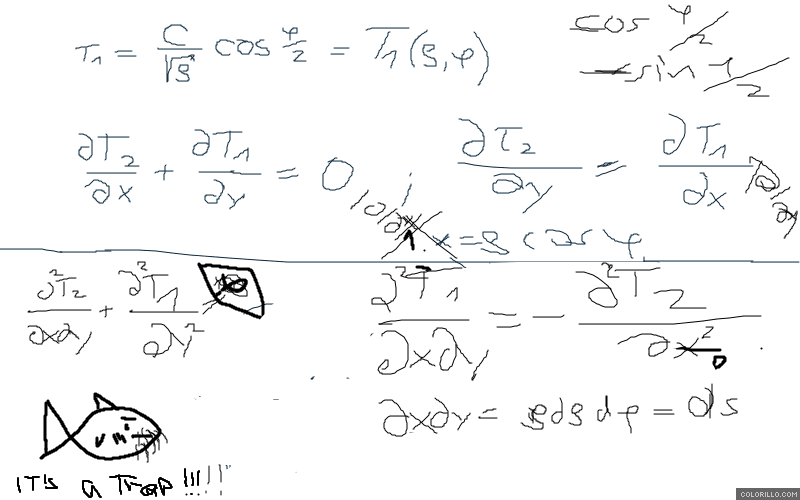 T₁ = C/√ρ cos φ/2 = T₁(ρ,φ)
cos φ/2
sin φ/2
∂T₂/∂x + ∂T₁/∂y = 0
∂T₂/∂y = ∂T₁/∂x
x = ρ cos φ
∂²T₂/∂x∂y + ∂²T₁/∂y²
∂²T₁/∂x∂y = - ∂²T₂/∂x²
∂x∂y = ρdρdφ = ds
IT's a Trap !!!!!
COLORILLO.COM